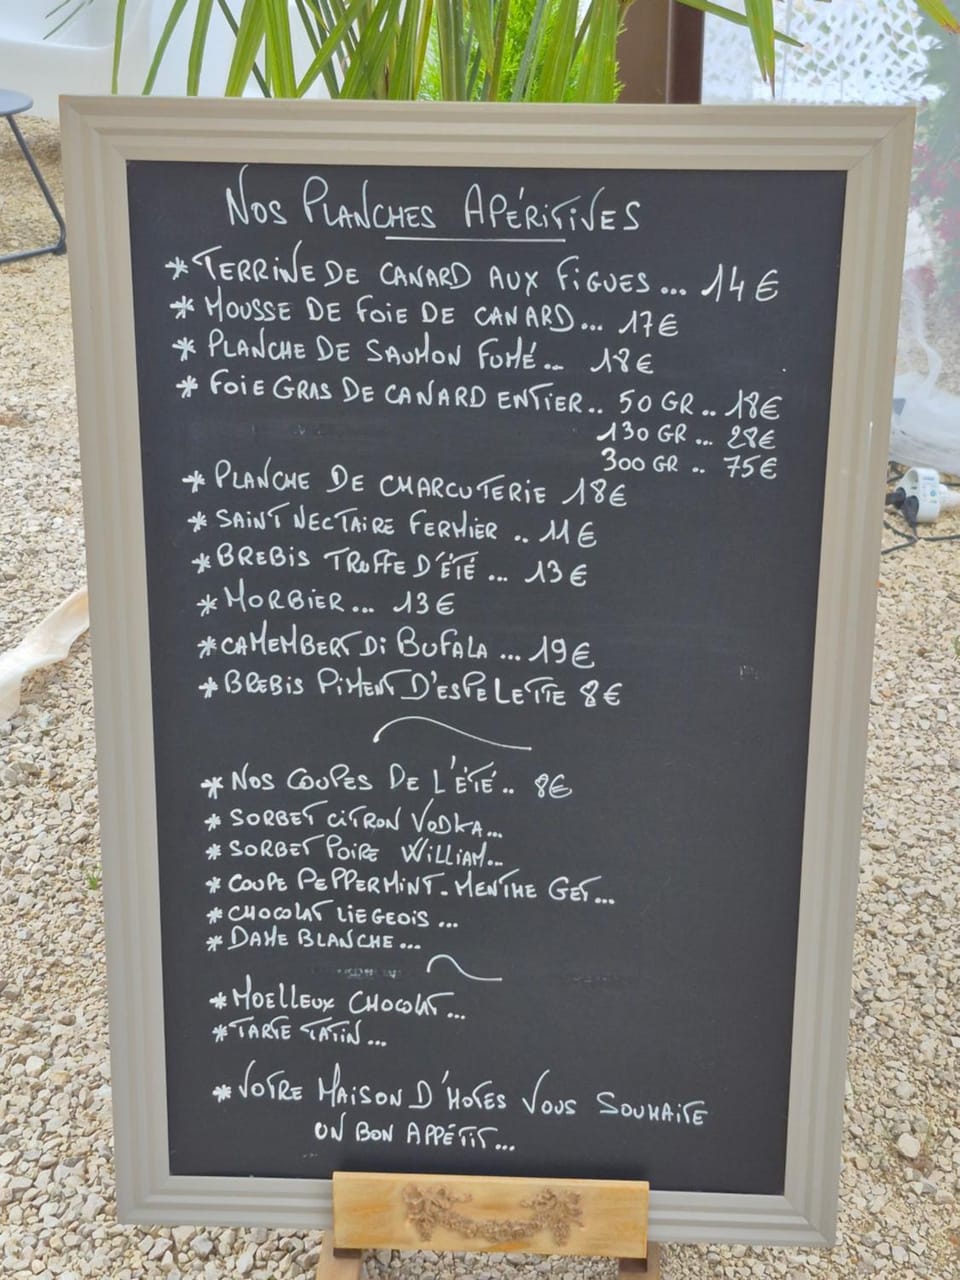 NOS PLANCHES APÉRITIVES
* TERRINE DE CANARD AUX FIGUES... 14€
* MOUSSE DE FOIE DE CANARD... 17€
* PLANCHE DE SAUMON FUMÉ... 18€
* FOIE GRAS DE CANARD ENTIER.. 50 GR .. 18€
130 GR ... 28€
300 GR .. 75€
* PLANCHE DE CHARCUTERIE 18€
* SAINT NECTAIRE FERMIER .. 11€
* BREBIS TRUFFE D'ÉTÉ ... 13€
* MORBIER... 13€
* CAMEMBERT DI BUFALA ... 19€
* BREBIS PIMENT D'ESPELETTE 8€
* NOS COUPES DE L'ÉTÉ.. 8€
* SORBET CITRON VODKA...
* SORBET POIRE WILLIAM...
* COUPE PEPPERMINT. MENTHE GET...
* CHOCOLAT LIEGEOIS ...
* DAME BLANCHE...
* MOELLEUX CHOCOLAT...
* TARTE TATIN...
* VOTRE MAISON D'HOTES VOUS SOUHAITE
UN BON APPÉTIT...